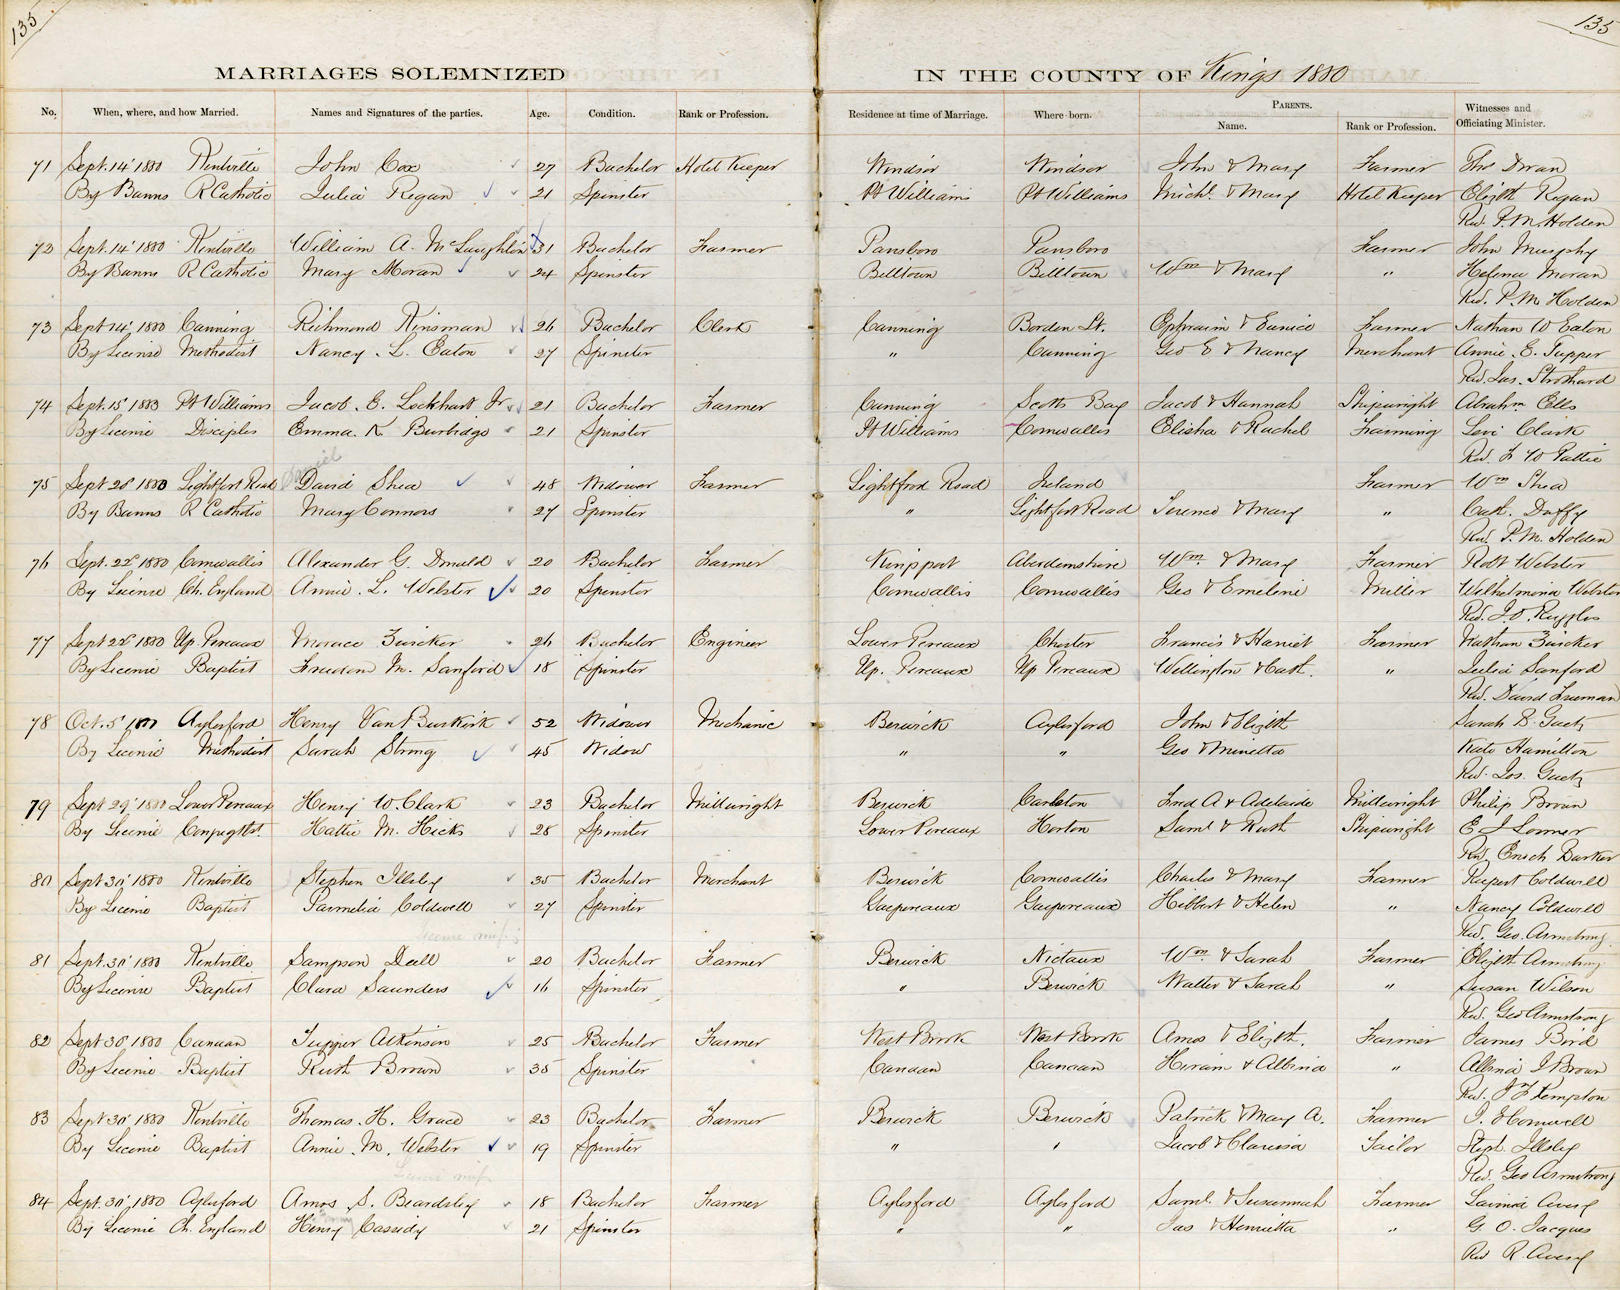 135
135
MARRIAGES SOLEMNIZED IN THE COUNTY OF Kings 1880
No. When, where, and how Married. Names and Signatures of the parties. Age. Condition. Rank or Profession. Residence at time of Marriage. Where born. PARENTS. Witnesses and Officiating Minister.
Name. Rank or Profession.
71 Sept. 14' 1880 Kentville John Cox 27 Bachelor Hotel Keeper Windsor Windsor John & Mary Farmer Thos Doran
By Banns R Catholic Julia Regan 21 Spinster Pt Williams Pt Williams Michl. & Mary Hotel Keeper Elizth Regan
Rev. P. M. Holden
72 Sept. 14' 1880 Kentville William A. McLaughlin 31 Bachelor Farmer Parrsboro Parrsboro Farmer John Murphy
By Banns R Catholic Mary Moran 24 Spinster Billtown Billtown Wm & Mary " Helena Moran
Rev. P. M. Holden
73 Sept 14' 1880 Canning Richmond Kinsman 26 Bachelor Clerk Canning Borden St. Ephraim & Eunice Farmer Nathan W Eaton
By License Methodist Nancy L. Eaton 27 Spinster " Canning Geo E & Nancy Merchant Annie E. Tupper
Rev. Jas. Strothard
74 Sept. 15' 1880 Pt Williams Jacob E. Lockhart Jr 21 Bachelor Farmer Canning Scotts Bay Jacob & Hannah Shipwright Abrahm Ells
By License Disciples Emma K Burbidge 21 Spinster Pt Williams Cornwallis Elisha & Rachel Farming Levi Clark
Rev.
Daniel
75 Sept 20' 1880 Lightfort Road David Shea 48 Widower Farmer Lightford Road Ireland Farmer Wm Shea
By Banns R Catholic Mary Connors 27 Spinster " Lightfort Road Terence & Mary " Cath. Duffy
Rev. P. M. Holden
76 Sept. 22d 1880 Cornwallis Alexander G. Donald 20 Bachelor Farmer Aberdeenshire Wm. & Mary Farmer Robt Webster
By License Ch. England Annie L. Webster 20 Spinster Cornwallis Cornwallis Geo & Emeline Miller Wilhelmina Webster
Rev. J. O. Ruggles
77 Sept 22d 1880 Up. Pereaux Horace Zwicker 26 Bachelor Engineer Lower Pereaux Chester Francis & Harriet Farmer Nathan Zwicker
By License Baptist M. Sanford 18 Spinster Up. Pereaux Up Pereaux Wellington & Cath. " Julia Sanford
Rev. David Freeman
78 Oct. 5' 1880 Aylesford Henry VanBuskirk 52 Widower Mechanic Berwick Aylesford John & Elizth Sarah B. Gaetz
By License Methodist Sarah Strong 45 Widow " " Geo & Minetta Kate Hamilton
Rev. Jos. Gaetz
79 Sept 29' 1880 Lower Pereaux Henry W. Clark 23 Bachelor Millwright Berwick Carleton Fred A & Adelaide Millwright Philip Brown
By License Congregtst. Hattie M. Hicks 28 Spinster Lower Pereaux Horton Saml & Ruth Shipwright E J
Rev. Enoch Barker
80 Sept 30' 1880 Kentville Stephen Illsley 35 Bachelor Merchant Berwick Cornwallis Charles & Mary Farmer Rupert Coldwell
By License Baptist Parmelia Coldwell 27 Spinster Gaspereaux Gaspereaux Hibbert & Helen " Nancy Coldwell
Rev. Geo. Armstrong
81 Sept. 30' 1880 Kentville Sampson Dell 20 Bachelor Farmer Berwick Nictaux Wm & Sarah Farmer Elizth Armstrong
By License Baptist Clara Saunders 16 Spinster " Berwick Walter & Sarah " Susan Wilson
Rev. Geo Armstrong
82 Sept 30' 1880 Canaan Tupper Atkinson 25 Bachelor Farmer West Brook West Brook Amos & Elizth. Farmer James Bird
By License Baptist Ruth Brown 35 Spinster Canaan Canaan Hiram & Albina " Albina J Brown
Rev. Kempton
83 Sept 30' 1880 Kentville Thomas H. Grace 23 Bachelor Farmer Berwick Berwick Patrick & Mary A. Farmer
By License Baptist Annie M. Webster 19 Spinster " " Jacob & Clarissa Tailor Steph. Illsley
Rev. Geo Armstrong
84 Sept. 30' 1880 Aylesford Amos S. Beardsley 18 Bachelor Farmer Aylesford Aylesford Saml. & Susannah Farmer Lavinia Avery
By License Ch. England Henry Cassidy 21 Spinster " " Jas & Henrietta " G. O. Jacques
Rev R. Avery